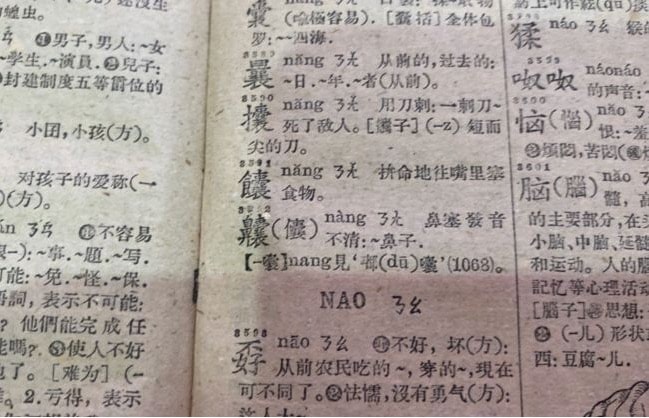 蛔虫.
ㄢˊ ❶男子,男人:~女
~学生.~演員. ❷兒子:
封建制度五等爵位的
小囝,小孩(方)。
对孩子的爱称(一
)(方)。
án ㄋㄢˊ ❶不容易
:~事.~題.~写.
可能:~免.~怪.~保.
語詞,表示不可能:
? 他們能完成任
能嗎? ❸使人不好
也了。[难为](一
。2.亏得,表示
囊
(喻極容易).[囊括]全体包
罗:~~四海.
8589
曩 nǎng ㄋㄤˇ 从前的,过去的:
~日.~年.~者(从前)。
8590
攮 nǎng ㄋㄤˇ 用刀刺:一刺刀~
死了敌人。[攮子](-z) 短而
尖的刀。
8591
饢 nǎng ㄋㄤˇ 拚命地往嘴里塞
食物。
8592
齉(儾) nàng ㄋㄤˋ 鼻塞發音
不清:~鼻子.
[-囊]nang見‘嘟(dū)囊’(1068)。
NAO ㄋㄠ
8593
孬 nāo ㄋㄠ ❶不好,坏(方):
从前农民吃的~,穿的~,現在
可不同了。❷怯懦,沒有勇气(方):
猱 náo ㄋㄠˊ
呶呶 náonáo
的声音:~
恼(惱) nǎo
恨:~羞
❷煩悶,苦悶(
8601
脑(腦) nǎo
髓,高
的主要部分,在头
小脑、中脑、延髓
和运动。人的脑
記忆等心理活动
[脑子]❶思想:
❷(-儿)形状
西:豆腐~儿.